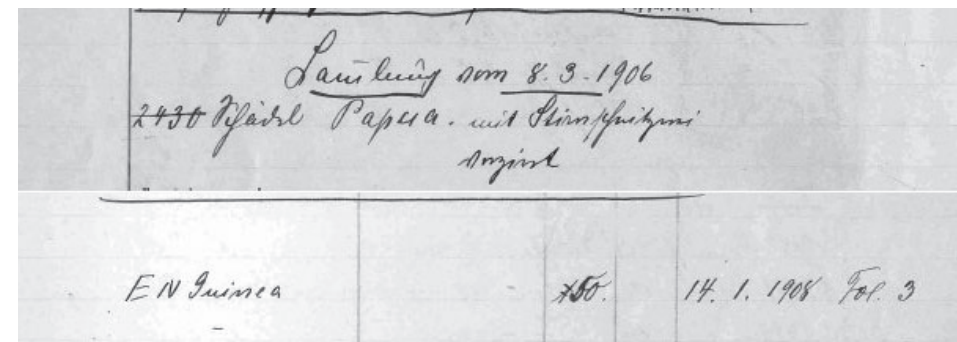 Samlung vom 8.3.1906
2430 Schädel Papua. mit Stirnschnitzerei
verziert
E N Guinea 14. 1. 1908 Fol. 3